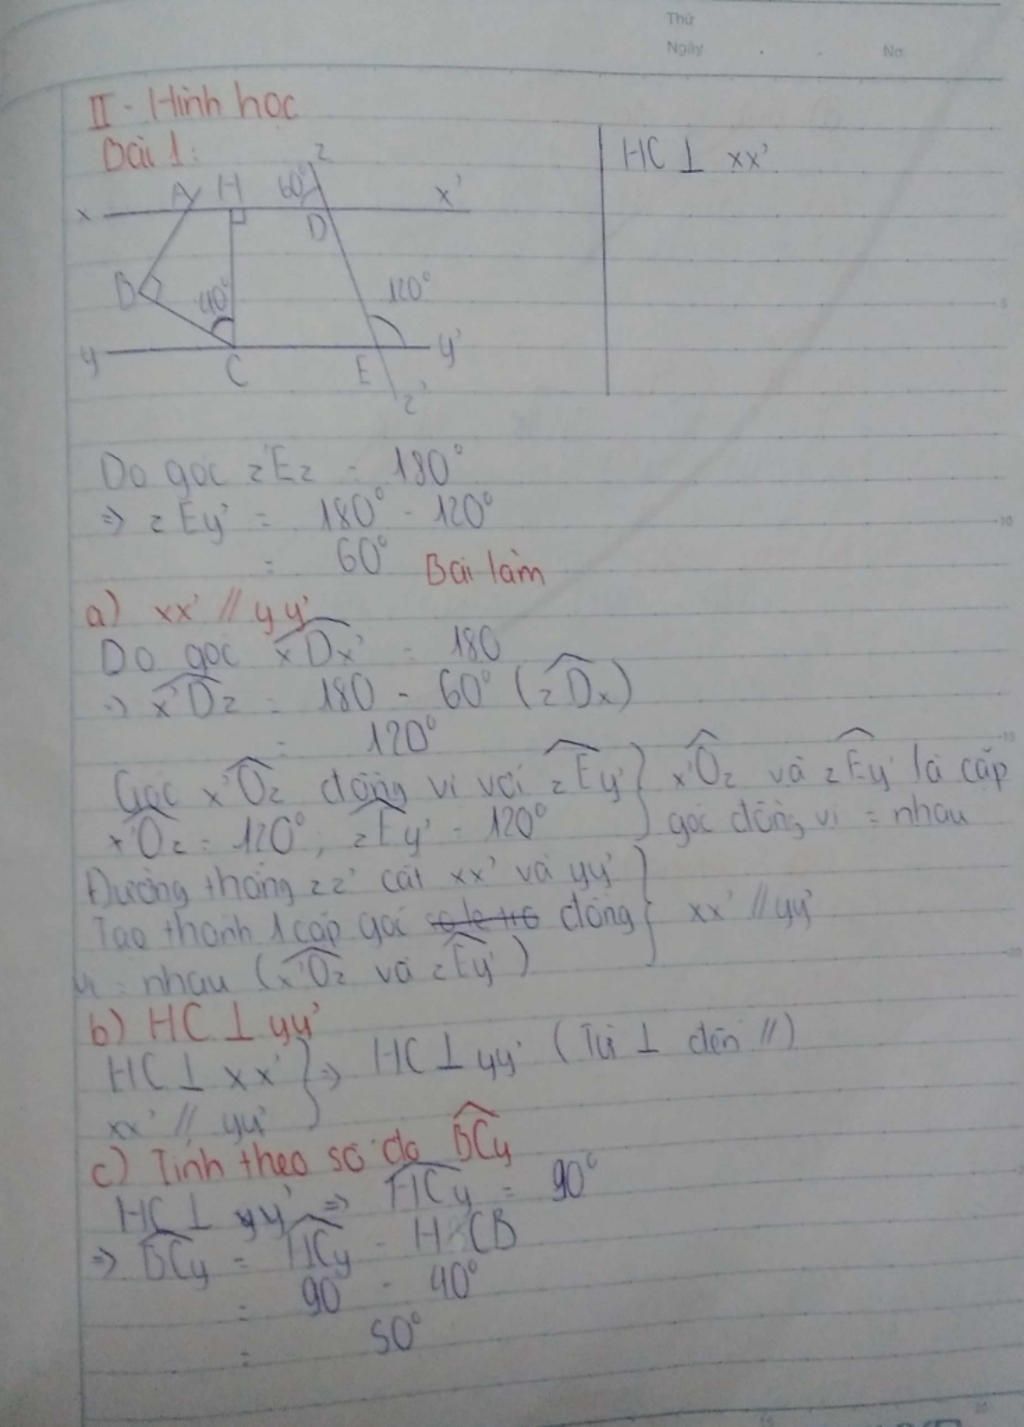 Thứ
Ngày . . No
II - Hình học
Bài 1:
HC ⊥ xx'
z
A H 60° x'
x D
B 40° 120°
y C E y'
z'
Do góc z'Ez = 180°
=> zEy' = 180° - 120°
= 60° Bài làm
a) xx' // yy'
Do góc xDx' = 180
=> x'Dz = 180 - 60° (zDx)
= 120°
Góc x'Dz đồng vị với zEy' } x'Dz và zEy' là cặp
x'Dz = 120°, zEy' = 120° góc đồng vị = nhau
Đường thẳng zz' cắt xx' và yy'
Tạo thành 1 cặp góc so le tro đồng } xx' // yy'
vị = nhau (x'Dz và zEy')
b) HC ⊥ yy'
HC ⊥ xx' } => HC ⊥ yy' (Từ ⊥ đến //)
xx' // yy'
c) Tính theo số đo BCy
HC ⊥ yy' => HCy = 90°
=> BCy = HCy - HCB
= 90 - 40°
= 50°